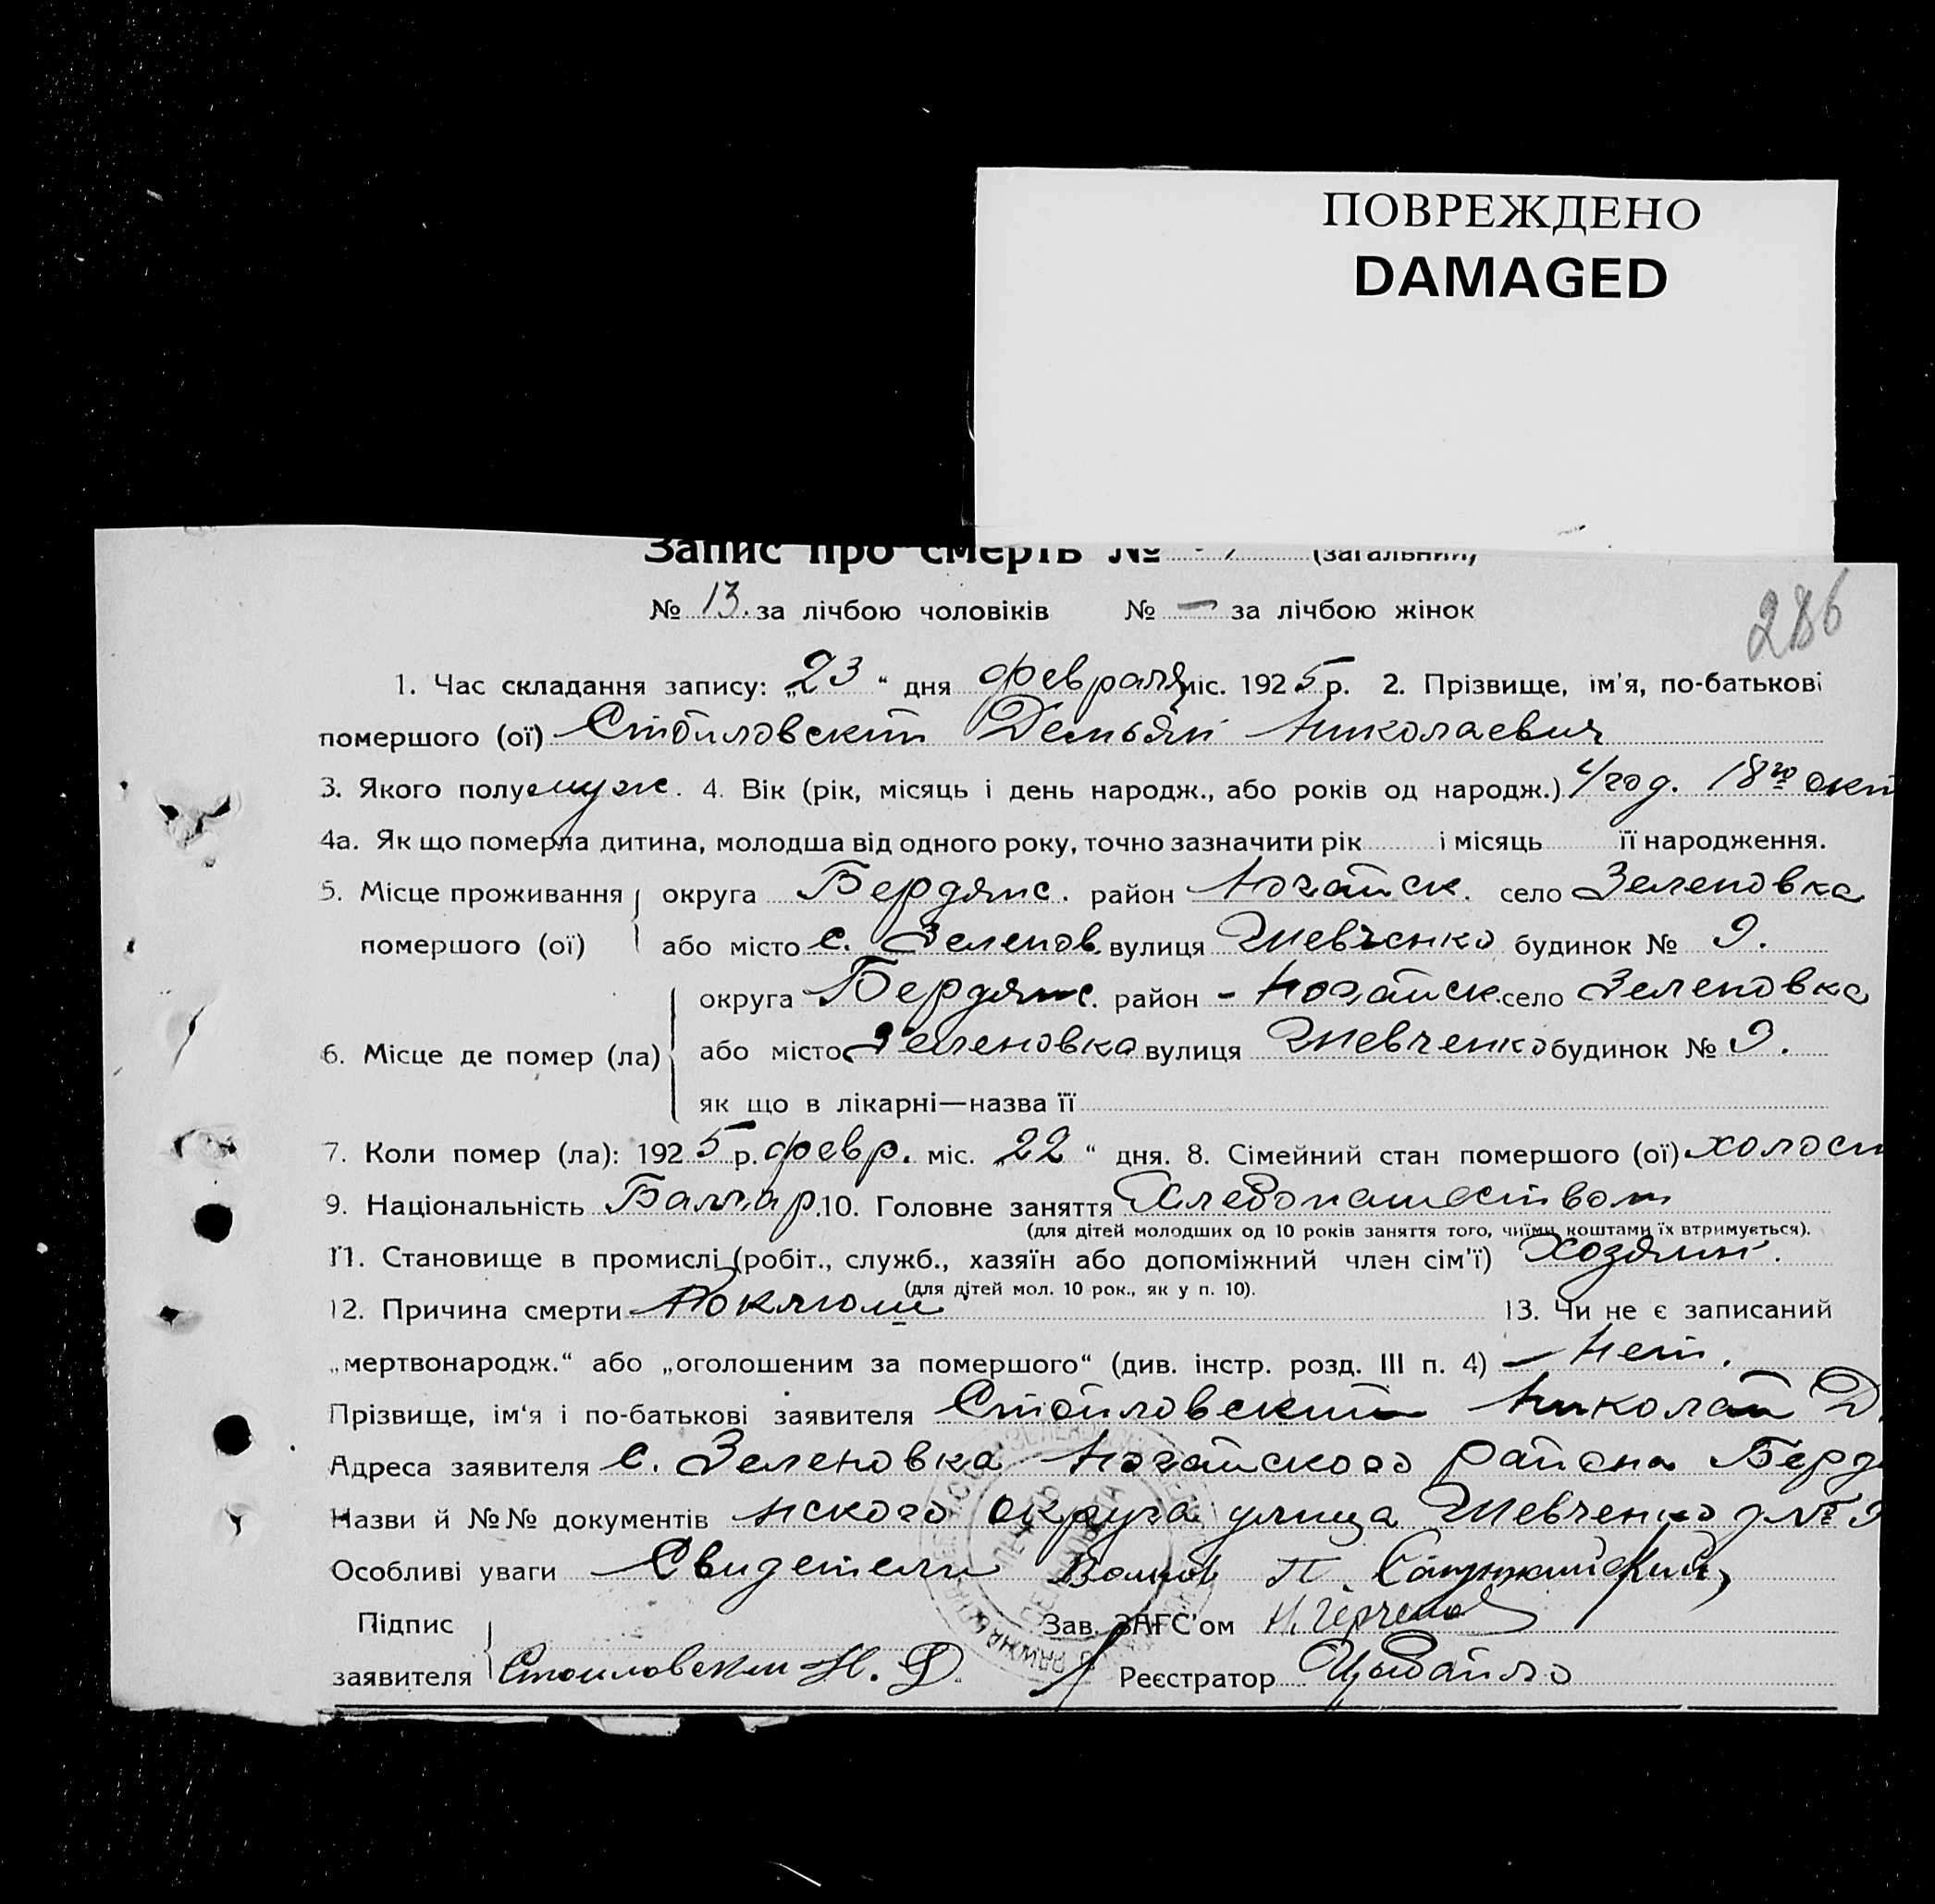 ПОВРЕЖДЕНО
DAMAGED
Запис про смерть № (загальний)
№ 13. за лічбою чоловіків № — за лічбою жінок
286
1. Час складання запису: „23“ дня февраля міс. 1925 р. 2. Прізвище, ім'я, по-батькові
помершого (ої) Стойловский Демьян Николаевич
3. Якого полу муж. 4. Вік (рік, місяць і день народж., або років од народж.) 4 год. 18го окт
4а. Як що померла дитина, молодша від одного року, точно зазначити рік і місяць її народження.
5. Місце проживання округа Бердянс. район Ногайск. село Зеленовка
помершого (ої) або місто с. Зеленов. вулиця Шевченко будинок № 9.
округа Бердянс. район - Ногайск. село Зеленовка
6. Місце де помер (ла) або місто Зеленовка вулиця Шевченко будинок № 9.
як що в лікарні—назва її
7. Коли помер (ла): 1925 р. февр. міс. „22“ дня. 8. Сімейний стан помершого (ої) холост
9. Національність Балгар. 10. Головне заняття Хлебопашеством
(для дітей молодших од 10 років заняття того, чиїми коштами їх втримується).
11. Становище в промислі (робіт., служб., хазяїн або допоміжний член сім'ї) Хозяин.
(для дітей мол. 10 рок., як у п. 10).
12. Причина смерти Коклюш 13. Чи не є записаний
„мертвонародж.“ або „оголошеним за помершого“ (див. інстр. розд. III п. 4) — Нет.
Прізвище, ім‘я і по-батькові заявителя Стойловский Николай Д.
Адреса заявителя с. Зеленовка Ногайского района Бердя
Назви й №№ документів нского округа улица Шевченко д № 9
Особливі уваги Свидетели П.
Підпис Зав. ЗАГС'ом Н.
заявителя Стоиловский Н. Д. Реєстратор Цыбайло